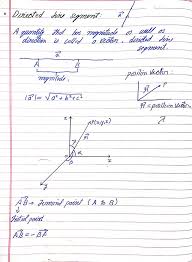 • Directed line segment:
A quantity that has magnitude as well as
direction is called a vector, directed line
segment.
A B
magnitude.
position vector:
|a⃗| = √a²+b²+c²
P
r⃗ = position vector
z
x
y
O
AB⃗ → Terminal point (A to B)
↓
Initial point
AB⃗ = -BA⃗